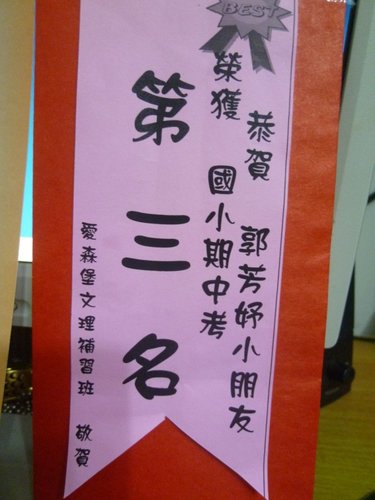 BEST
恭賀 郭芳妤小朋友
榮獲 國小期中考
第三名
愛森堡文理補習班 敬賀